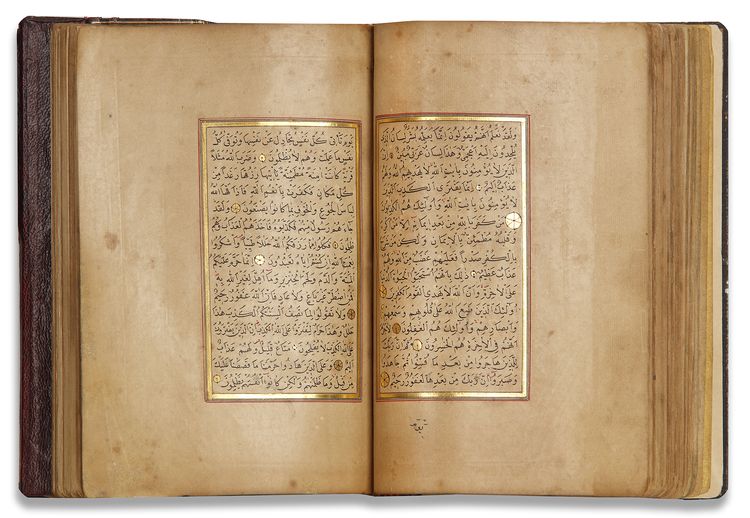 ولقد نعلم انهم يقولون انما يعلمه بشر لسان الذي
يلحدون اليه اعجمي وهذا لسان عربي مبين ان
الذين لا يؤمنون بايات الله لا يهديهم الله ولهم
عذاب اليم انما يفتري الكذب الذين
لا يؤمنون بايات الله واولئك هم الكاذبون
من كفر بالله من بعد ايمانه الا من اكره
وقلبه مطمئن بالايمان ولكن من شرح
بالكفر صدرا فعليهم غضب من الله ولهم
عذاب عظيم ذلك بانهم استحبوا الحيوة الدنيا
على الاخرة وان الله لا يهدي القوم الكافرين
اولئك الذين طبع الله على قلوبهم وسمعهم
وابصارهم واولئك هم الغافلون لا جرم
انهم في الاخرة هم الخاسرون ثم ان ربك
للذين هاجروا من بعد ما فتنوا ثم جاهدوا
وصبروا ان ربك من بعدها لغفور رحيم
يوم
يوم تأتي كل نفس تجادل عن نفسها وتوفى كل
نفس ما عملت وهم لا يظلمون وضرب الله مثلا
قرية كانت امنة مطمئنة يأتيها رزقها رغدا من
كل مكان فكفرت بانعم الله فاذاقها الله
لباس الجوع والخوف بما كانوا يصنعون ولقد
جاءهم رسول منهم فكذبوه فاخذهم العذاب وهم
ظالمون فكلوا مما رزقكم الله حلالا طيبا واشكروا
نعمة الله ان كنتم اياه تعبدون انما حرم عليكم
الميتة والدم ولحم الخنزير وما اهل لغير الله به
فمن اضطر غير باغ ولا عاد فان الله غفور رحيم
ولا تقولوا لما تصف السنتكم الكذب هذا
حلال وهذا حرام لتفتروا على الله الكذب ان الذين يفترون
على الله الكذب لا يفلحون متاع قليل ولهم عذاب
اليم وعلى الذين هادوا حرمنا ما قصصنا عليك
من قبل وما ظلمناهم ولكن كانوا انفسهم يظلمون